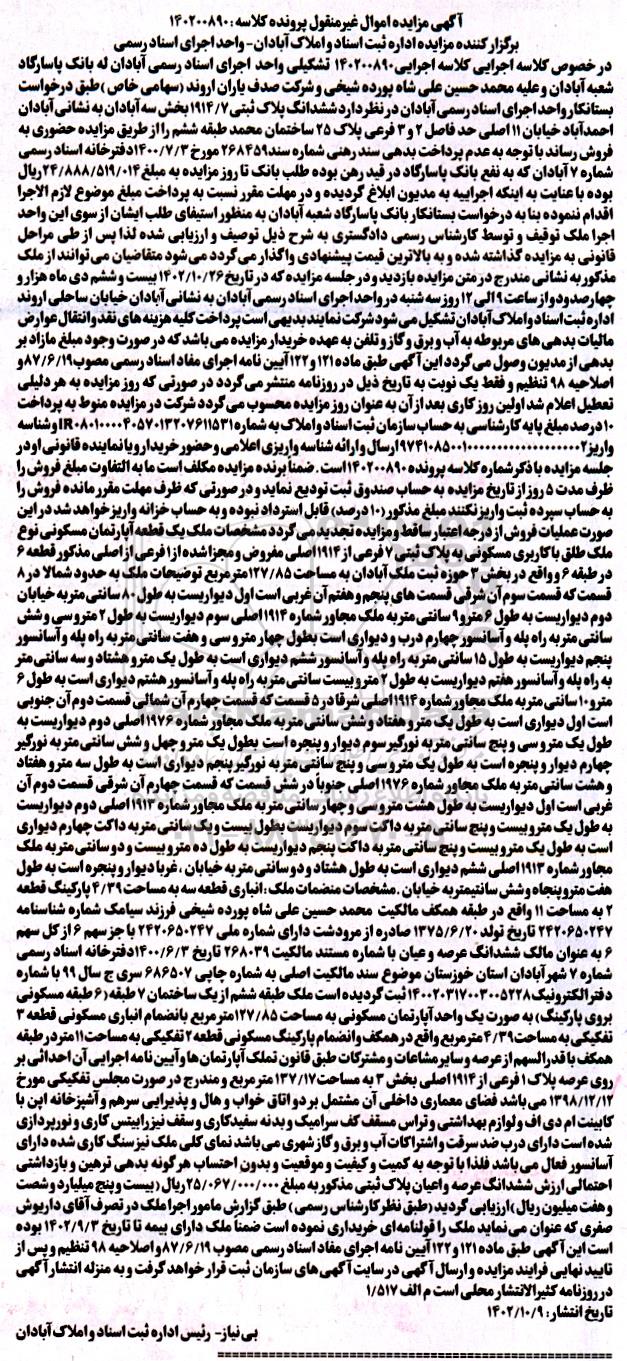 آگهی مزایده اموال غیرمنقول پرونده کلاسه : ۱۴۰۲۰۰۸۹۰
برگزار کننده مزایده اداره ثبت اسناد و املاک آبادان- واحد اجرای اسناد رسمی
در خصوص کلاسه اجرایی کلاسه اجرایی ۱۴۰۲۰۰۸۹۰ تشکیلی واحد اجرای اسناد رسمی آبادان له بانک پاسارگاد
شعبه آبادان و علیه محمد حسین علی شاه پورده شیخی و شرکت صدف یاران اروند (سهامی خاص) طبق درخواست
بستانکار واحد اجرای اسناد رسمی آبادان در نظر دارد ششدانگ پلاک ثبتی ۱۹۱۴/۷ بخش سه آبادان به نشانی آبادان
احمدآباد خیابان ۱۱ اصلی حد فاصل ۲ و ۳ فرعی پلاک ۲۵ ساختمان محمد طبقه ششم را از طریق مزایده حضوری به
فروش رساند با توجه به عدم پرداخت بدهی سند رهنی شماره سند ۲۶۸۴۵۹ مورخ ۱۴۰۰/۷/۳ دفترخانه اسناد رسمی
شماره ۷ آبادان که به نفع بانک پاسارگاد در قید رهن بوده طلب بانک تا روز مزایده به مبلغ ۲۴/۸۸۸/۵۱۹/۰۱۴ ریال
بوده با عنایت به اینکه اجراییه به مدیون ابلاغ گردیده و در مهلت مقرر نسبت به پرداخت مبلغ موضوع لازم الاجرا
اقدام ننموده بنا به درخواست بستانکار بانک پاسارگاد شعبه آبادان به منظور استیفای طلب ایشان از سوی این واحد
اجرا ملک توقیف و توسط کارشناس رسمی دادگستری به شرح ذیل توصیف و ارزیابی شده لذا پس از طی مراحل
قانونی به مزایده گذاشته شده و به بالاترین قیمت پیشنهادی واگذار می گردد می شود متقاضیان می توانند از ملک
مذکور به نشانی مندرج در متن مزایده بازدید و در جلسه مزایده که در تاریخ ۱۴۰۲/۱۰/۲۶ بیست و ششم دی ماه هزار و
چهارصد و دو از ساعت ۹ الی ۱۲ روز سه شنبه در واحد اجرای اسناد رسمی آبادان به نشانی آبادان خیابان ساحلی اروند
اداره ثبت اسناد و املاک آبادان تشکیل می شود شرکت نمایند بدیهی است پرداخت کلیه هزینه های نقد و انتقال عوارض
مالیات بدهی های مربوطه به آب و برق و گاز و تلفن به عهده خریدار مزایده می باشد که در صورت وجود مبلغ مازاد بر
بدهی از مدیون وصول می گردد این آگهی طبق ماده ۱۲۱ و ۱۲۲ آیین نامه اجرای مفاد اسناد رسمی مصوب ۸۷/۶/۱۹ و
اصلاحیه ۹۸ تنظیم و فقط یک نوبت به تاریخ ذیل در روزنامه منتشر می گردد در صورتی که روز مزایده به هر دلیلی
تعطیل اعلام شد اولین روز کاری بعد از آن به عنوان روز مزایده محسوب می گردد شرکت در مزایده منوط به پرداخت
۱۰ درصد مبلغ پایه کارشناسی به حساب سازمان ثبت اسناد و املاک به شماره IR۰۸۰۱۰۰۰۰۴۰۵۷۰۱۳۲۰۷۶۱۱۵۳۱ و شناسه
جلسه مزایده با ذکر شماره کلاسه پرونده ۱۴۰۲۰۰۸۹۰ است . ضمناً برنده مزایده مکلف است ما به التفاوت مبلغ فروش را
ظرف مدت ۵ روز از تاریخ مزایده به حساب صندوق ثبت تودیع نماید و در صورتی که ظرف مهلت مقرر مانده فروش را
به حساب سپرده ثبت واریز نکنند مبلغ مذکور (۱۰ درصد) قابل استرداد نبوده و به حساب خزانه واریز خواهد شد در این
صورت عملیات فروش از درجه اعتبار ساقط و مزایده تجدید می گردد مشخصات ملک یک قطعه آپارتمان مسکونی نوع
ملک طلق با کاربری مسکونی به پلاک ثبتی ۷ فرعی از ۱۹۱۴ اصلی مفروض و مجزا شده از ۱ فرعی از اصلی مذکور قطعه ۶
در طبقه ۶ و واقع در بخش ۳ حوزه ثبت ملک آبادان به مساحت ۱۲۷/۸۵ متر مربع توضیحات ملک به حدود شمالا در ۸
قسمت که قسمت سوم آن شرقی قسمت های پنجم و هفتم آن غربی است اول دیواریست به طول ۸۰ سانتی متر به خیابان
دوم دیواریست به طول ۶ متر و ۹ سانتی متر به ملک مجاور شماره ۱۹۱۴ اصلی سوم دیواریست به طول ۲ متر و سی و شش
سانتی متر به راه پله و آسانسور چهارم درب و دیواری است بطول چهار متر و سی و هفت سانتی متر به راه پله و آسانسور
پنجم دیواریست به طول ۱۵ سانتی متر به راه پله و آسانسور ششم دیواری است به طول یک متر و هشتاد و سه سانتی متر
به راه پله و آسانسور هفتم دیواریست به طول ۲ متر و بیست سانتی متر به راه پله و آسانسور هشتم دیواری است به طول ۶
متر و ۱۰ سانتی متر به ملک مجاور شماره ۱۹۱۴ اصلی شرقا در ۵ قسمت که قسمت چهارم آن شمالی قسمت دوم آن جنوبی
است اول دیواری است به طول یک متر و هفتاد و شش سانتی متر به ملک مجاور شماره ۱۹۷۶ اصلی دوم دیواریست به
طول یک متر و سی و پنج سانتی متر به نورگیر سوم دیوار و پنجره است بطول یک متر و چهل و شش سانتی متر به نورگیر
چهارم دیوار و پنجره است به طول یک متر و سی و پنج سانتی متر به نورگیر پنجم دیواری است به طول سه متر و هفتاد
و هشت سانتی متر به ملک مجاور شماره ۱۹۷۶ اصلی جنوباً در شش قسمت که قسمت چهارم آن شرقی قسمت دوم آن
غربی است اول دیواریست به طول هشت متر و سی و چهار سانتی متر به ملک مجاور شماره ۱۹۱۳ اصلی دوم دیواریست
به طول یک متر و بیست و پنج سانتی متر به داکت سوم دیواریست بطول بیست و یک سانتی متر به داکت چهارم دیواری
است به طول یک متر و بیست و پنج سانتی متر به داکت پنجم دیواریست به طول ده متر و بیست و دو سانتی متر به ملک
مجاور شماره ۱۹۱۳ اصلی ششم دیواری است به طول هشتاد و دو سانتی متر به خیابان ، غربا دیوار و پنجره است به طول
هفت متر و پنجاه و شش سانتیمتر به خیابان . مشخصات منضمات ملک : انباری قطعه سه به مساحت ۴/۳۹ پارکینگ قطعه
۲ به مساحت ۱۱ واقع در طبقه همکف مالکیت محمد حسین علی شاه پورده شیخی فرزند سیامک شماره شناسنامه
۲۴۲۰۶۵۰۲۴۷ تاریخ تولد ۱۳۷۵/۶/۲۰ صادره از مرودشت دارای شماره ملی ۲۴۲۰۶۵۰۲۴۷ با جز سهم ۶ از کل سهم
۶ به عنوان مالک ششدانگ عرصه و عیان با شماره مستند مالکیت ۲۶۸۰۳۹ تاریخ ۱۴۰۰/۶/۳ دفترخانه اسناد رسمی
شماره ۷ شهر آبادان استان خوزستان موضوع سند مالکیت اصلی به شماره چاپی ۶۸۶۵۰۷ سری ج سال ۹۹ با شماره
دفتر الکترونیک ۱۴۰۰۲۰۳۱۷۰۰۳۰۰۵۲۲۸ ثبت گردیده است ملک طبقه ششم از یک ساختمان ۷ طبقه (۶ طبقه مسکونی
بروی پارکینگ) به صورت یک واحد آپارتمان مسکونی به مساحت ۱۲۷/۸۵ متر مربع بانضمام انباری مسکونی قطعه ۳
تفکیکی به مساحت ۴/۳۹ متر مربع واقع در همکف و انضمام پارکینگ مسکونی قطعه ۲ تفکیکی به مساحت ۱۱ متر در طبقه
همکف با قدرالسهم از عرصه و سایر مشاعات و مشترکات طبق قانون تملک آپارتمان ها و آیین نامه اجرایی آن احداثی بر
روی عرصه پلاک ۱ فرعی از ۱۹۱۴ اصلی بخش ۳ به مساحت ۱۳۷/۱۷ متر مربع و مندرج در صورت مجلس تفکیکی مورخ
۱۳۹۸/۱۲/۱۲ می باشد فضای معماری داخلی آن مشتمل بر دو اتاق خواب و هال و پذیرایی سرهم و آشپزخانه اپن با
کابینت ام دی اف و لوازم بهداشتی و تراس مسقف کف سرامیک و بدنه سفیدکاری و سقف نیز رابیتس کاری و نورپردازی
شده است دارای درب ضد سرقت و اشتراکات آب و برق و گاز شهری می باشد نمای کلی ملک نیز سنگ کاری شده دارای
آسانسور فعال می باشد فلذا با توجه به کمیت و کیفیت و موقعیت و بدون احتساب هرگونه بدهی ترهین و بازداشتی
احتمالی ارزش ششدانگ عرصه و اعیان پلاک ثبتی مذکور به مبلغ ۲۵/۰۶۷/۰۰۰/۰۰۰ ریال (بیست و پنج میلیارد و شصت
و هفت میلیون ریال) ارزیابی گردید (طبق نظر کارشناس رسمی) طبق گزارش مامور اجرا ملک در تصرف آقای داریوش
صفری که عنوان می نماید ملک را قولنامه ای خریداری نموده است ضمناً ملک دارای بیمه تا تاریخ ۱۴۰۲/۹/۳ بوده
است این آگهی طبق ماده ۱۲۱ و ۱۲۲ آیین نامه اجرای مفاد اسناد رسمی مصوب ۸۷/۶/۱۹ و اصلاحیه ۹۸ تنظیم و پس از
تایید نهایی فرایند مزایده و ارسال آگهی در سایت آگهی های سازمان ثبت قرار خواهد گرفت و به منزله انتشار آگهی
در روزنامه کثیرالانتشار محلی است م الف ۱/۵۱۷
تاریخ انتشار : ۱۴۰۲/۱۰/۹
بی نیاز- رئیس اداره ثبت اسناد و املاک آبادان